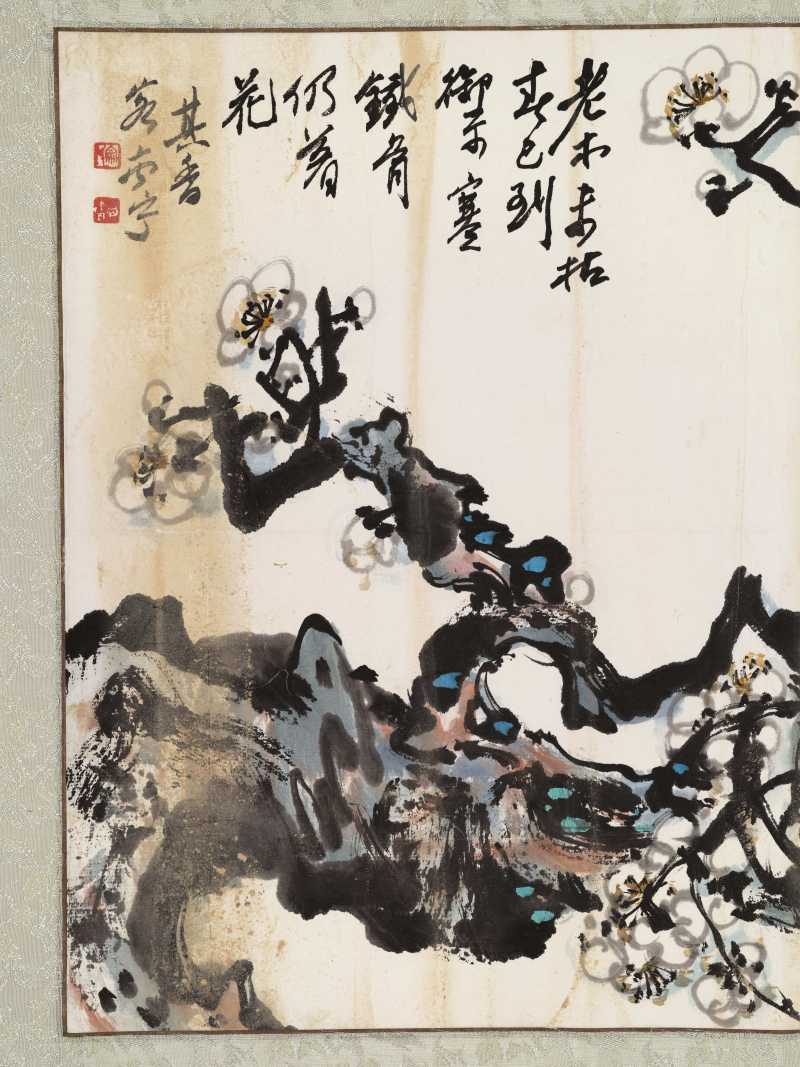 老木未枯
春已到
御寒
鐵骨
仍着
花
其香
客南宁